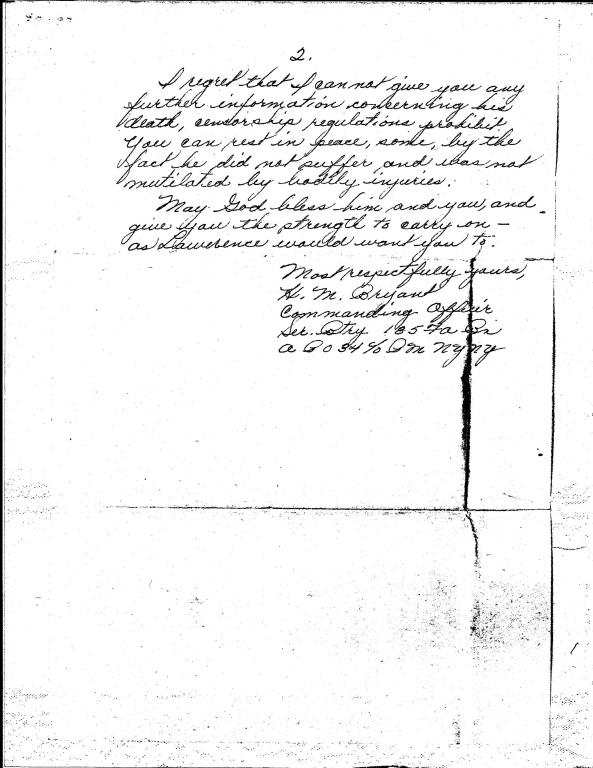 2.
I regret that I cannot give you any
further information concerning his
death, censorship regulations prohibit.
You can, rest in peace, some, by the
fact he did not suffer, and was not
mutilated by bodily injuries.
May God bless him and you, and
give you the strength to carry on —
as Lawerence would want you to.
Most respectfully yours,
H. M. Bryant
Commanding Officer
Ser. Btry 185 Fa Bn
A P O 34 % P M N Y N Y